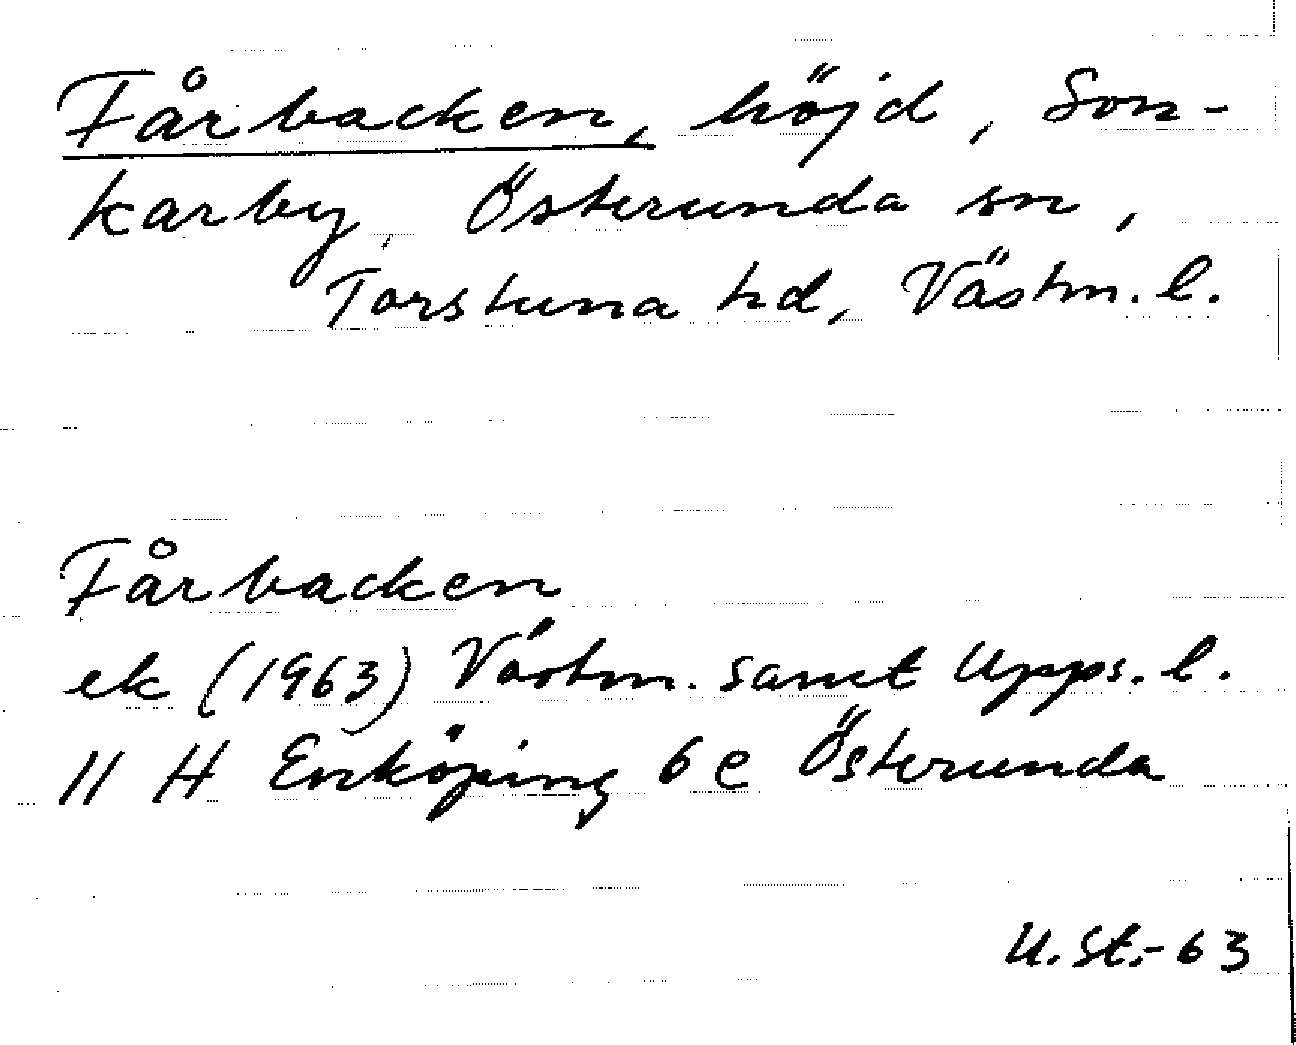 Fårbacken, höjd, Son-
karby, Österunda sn,
Torstuna hd, Västm. l.
Fårbacken
ek (1963) Västm. samt Upps. l.
11 H Enköping 6 e Österunda
U. St.-63